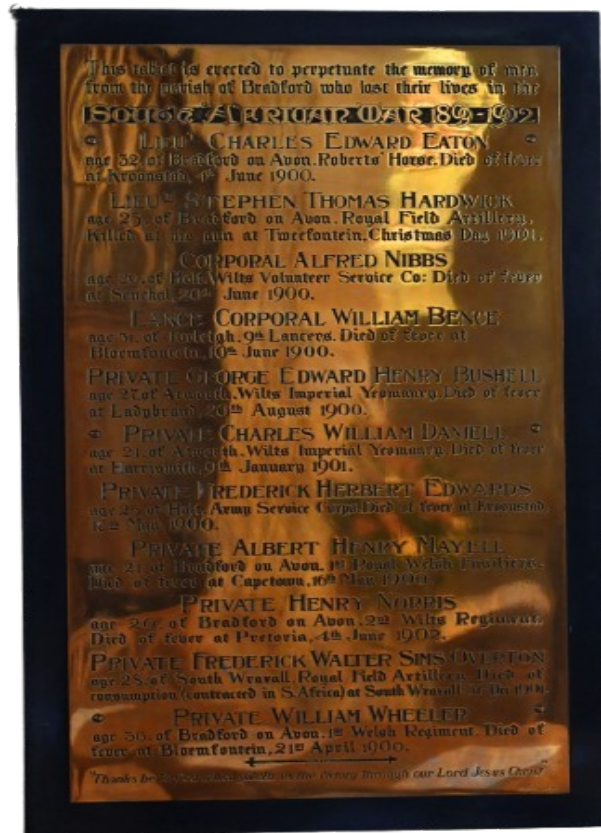 This tablet is erected to perpetuate the memory of men
from the parish of Bradford who lost their lives in the
SOUTH AFRICAN WAR 1899-1902
LIEUT CHARLES EDWARD EATON
age 32, of Bradford on Avon. Roberts' Horse. Died of fever
at Kroonstad, June 1900.
LIEUT STEPHEN THOMAS HARDWICK
age 25, of Bradford on Avon. Royal Field Artillery.
Killed at his gun at Tweefontein, Christmas Day 1901.
CORPORAL ALFRED NIBBS
age of Holt, Wilts Volunteer Service Co: Died of fever
at Senekal, 20th June 1900.
LANCE CORPORAL WILLIAM BENCE
age 31, of Turleigh, 9th Lancers. Died of fever at
Bloemfontein, 10th June 1900.
PRIVATE GEORGE EDWARD HENRY BUSHELL
age 27, of Atworth, Wilts Imperial Yeomanry. Died of fever
at Ladybrand, 26th August 1900.
PRIVATE CHARLES WILLIAM DANIELL
age 21, of Atworth. Wilts Imperial Yeomanry. Died of fever
at Harrismith, 9th January 1901.
PRIVATE FREDERICK HERBERT EDWARDS
age of Holt, Army Service Corps. Died of fever at Kroonstad,
May 1900.
PRIVATE ALBERT HENRY MAYELL
age 21, of Bradford on Avon. 1st Royal Welsh Fusiliers.
Died of fever at Capetown, 16th May 1900.
PRIVATE HENRY NORRIS
age 26, of Bradford on Avon. 2nd Wilts Regiment.
Died of fever at Pretoria, 4th June 1902.
PRIVATE FREDERICK WALTER SIMS OVERTON
age 28, of South Wraxall, Royal Field Artillery. Died of
consumption (contracted in S. Africa) at South Wraxall,
PRIVATE WILLIAM WHEELER
age 36, of Bradford on Avon. 1st Welsh Regiment. Died of
fever at Bloemfontein, 21st April 1900.
"Thanks be to God which giveth us the victory through our Lord Jesus Christ"